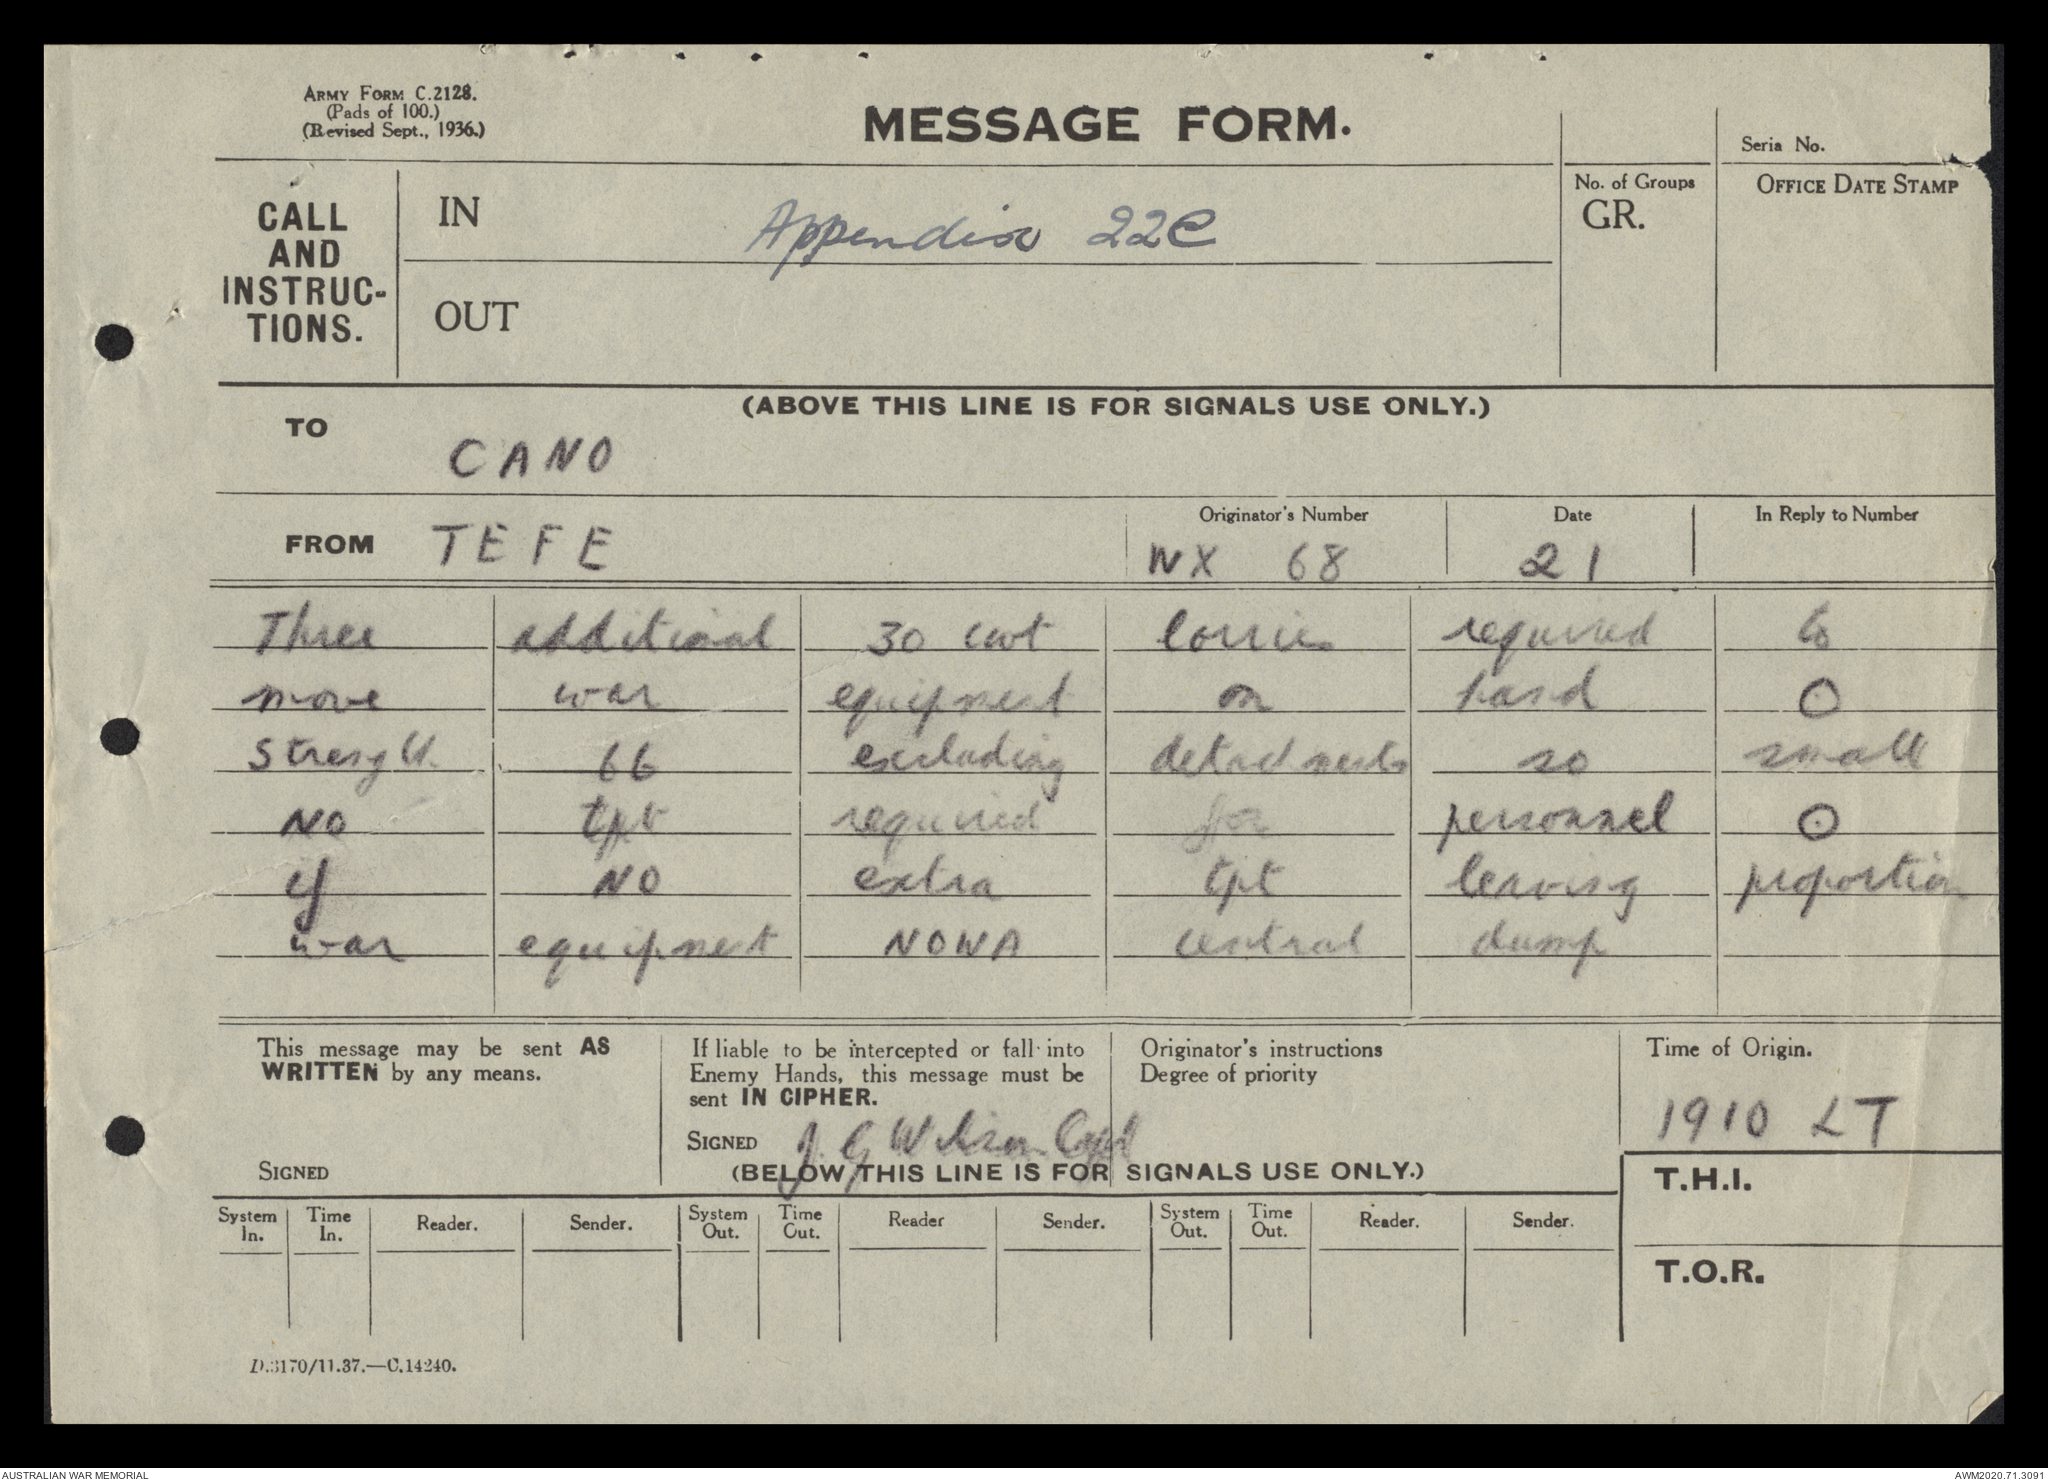 ARMY FORM C.2128.
(Pads of 100.)
(Revised Sept., 1936.)
MESSAGE FORM.
Seria No.
CALL
AND
INSTRUC-
TIONS.
IN
Appendix 22C
OUT
No. of Groups
GR.
OFFICE DATE STAMP
(ABOVE THIS LINE IS FOR SIGNALS USE ONLY.)
TO
CANO
FROM TEFE
Originator's Number
NX 68
Date
21
In Reply to Number
Three additional 30 cwt lorries required to
move war equipment on hand O
Strength 66 excluding detachments so small
NO tpt required for personnel O
if NO extra tpt leaving proportion
war equipment NOWA central dump
This message may be sent AS
WRITTEN by any means.
SIGNED
If liable to be intercepted or fall into
Enemy Hands, this message must be
sent IN CIPHER.
SIGNED J. G Wilson Capt
Originator's instructions
Degree of priority
Time of Origin.
1910 LT
(BELOW THIS LINE IS FOR SIGNALS USE ONLY.)
T.H.I.
T.O.R.
System In. Time In. Reader. Sender. System Out. Time Out. Reader Sender. System Out. Time Out. Reader. Sender.
D.3170/11.37.—C.14240.
AUSTRALIAN WAR MEMORIAL
AWM2020.71.3091